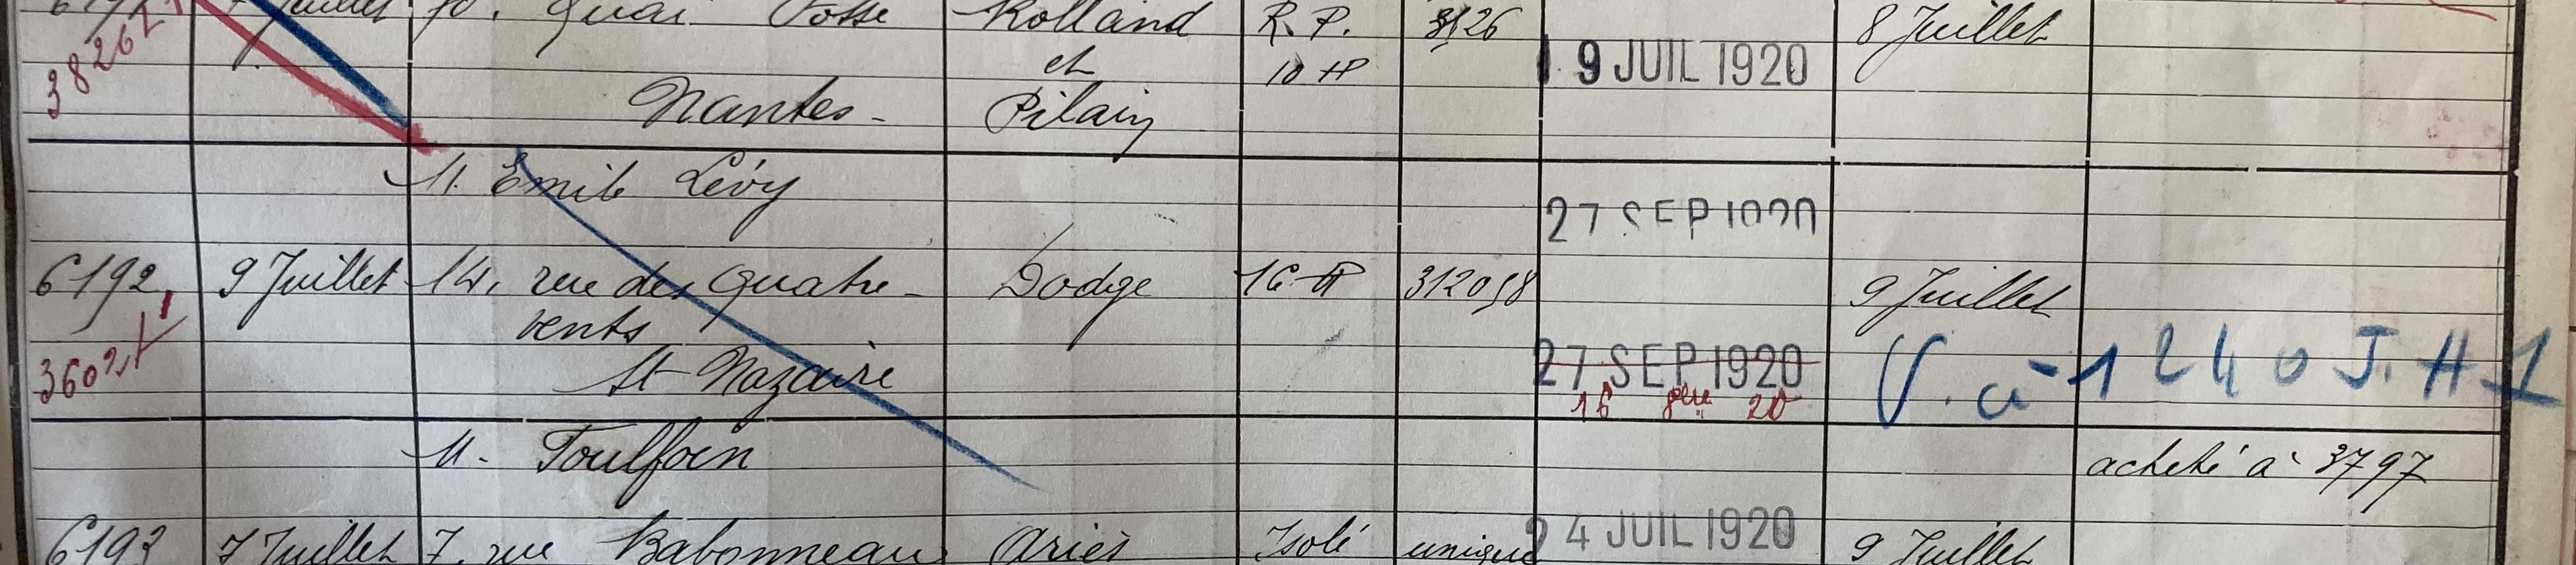 7 Juillet 70. Quai Fosse Rolland R.P. 3126 8 Juillet
38262 et 10 HP 19 JUIL 1920
Nantes - Pilain
M. Emile Lévy
27 SEP 1920
6192 9 Juillet 14, rue des Quatre- Dodge 16 HP 312098 9 Juillet
vents
3602 St-Nazaire 27 SEP 1920 V. à 1240 J.H1
16 20
M. Toulfoin acheté à 3797
6193 7 Juillet 7, rue Babonneau Ariès Isolé unique 24 JUIL 1920 9 Juillet